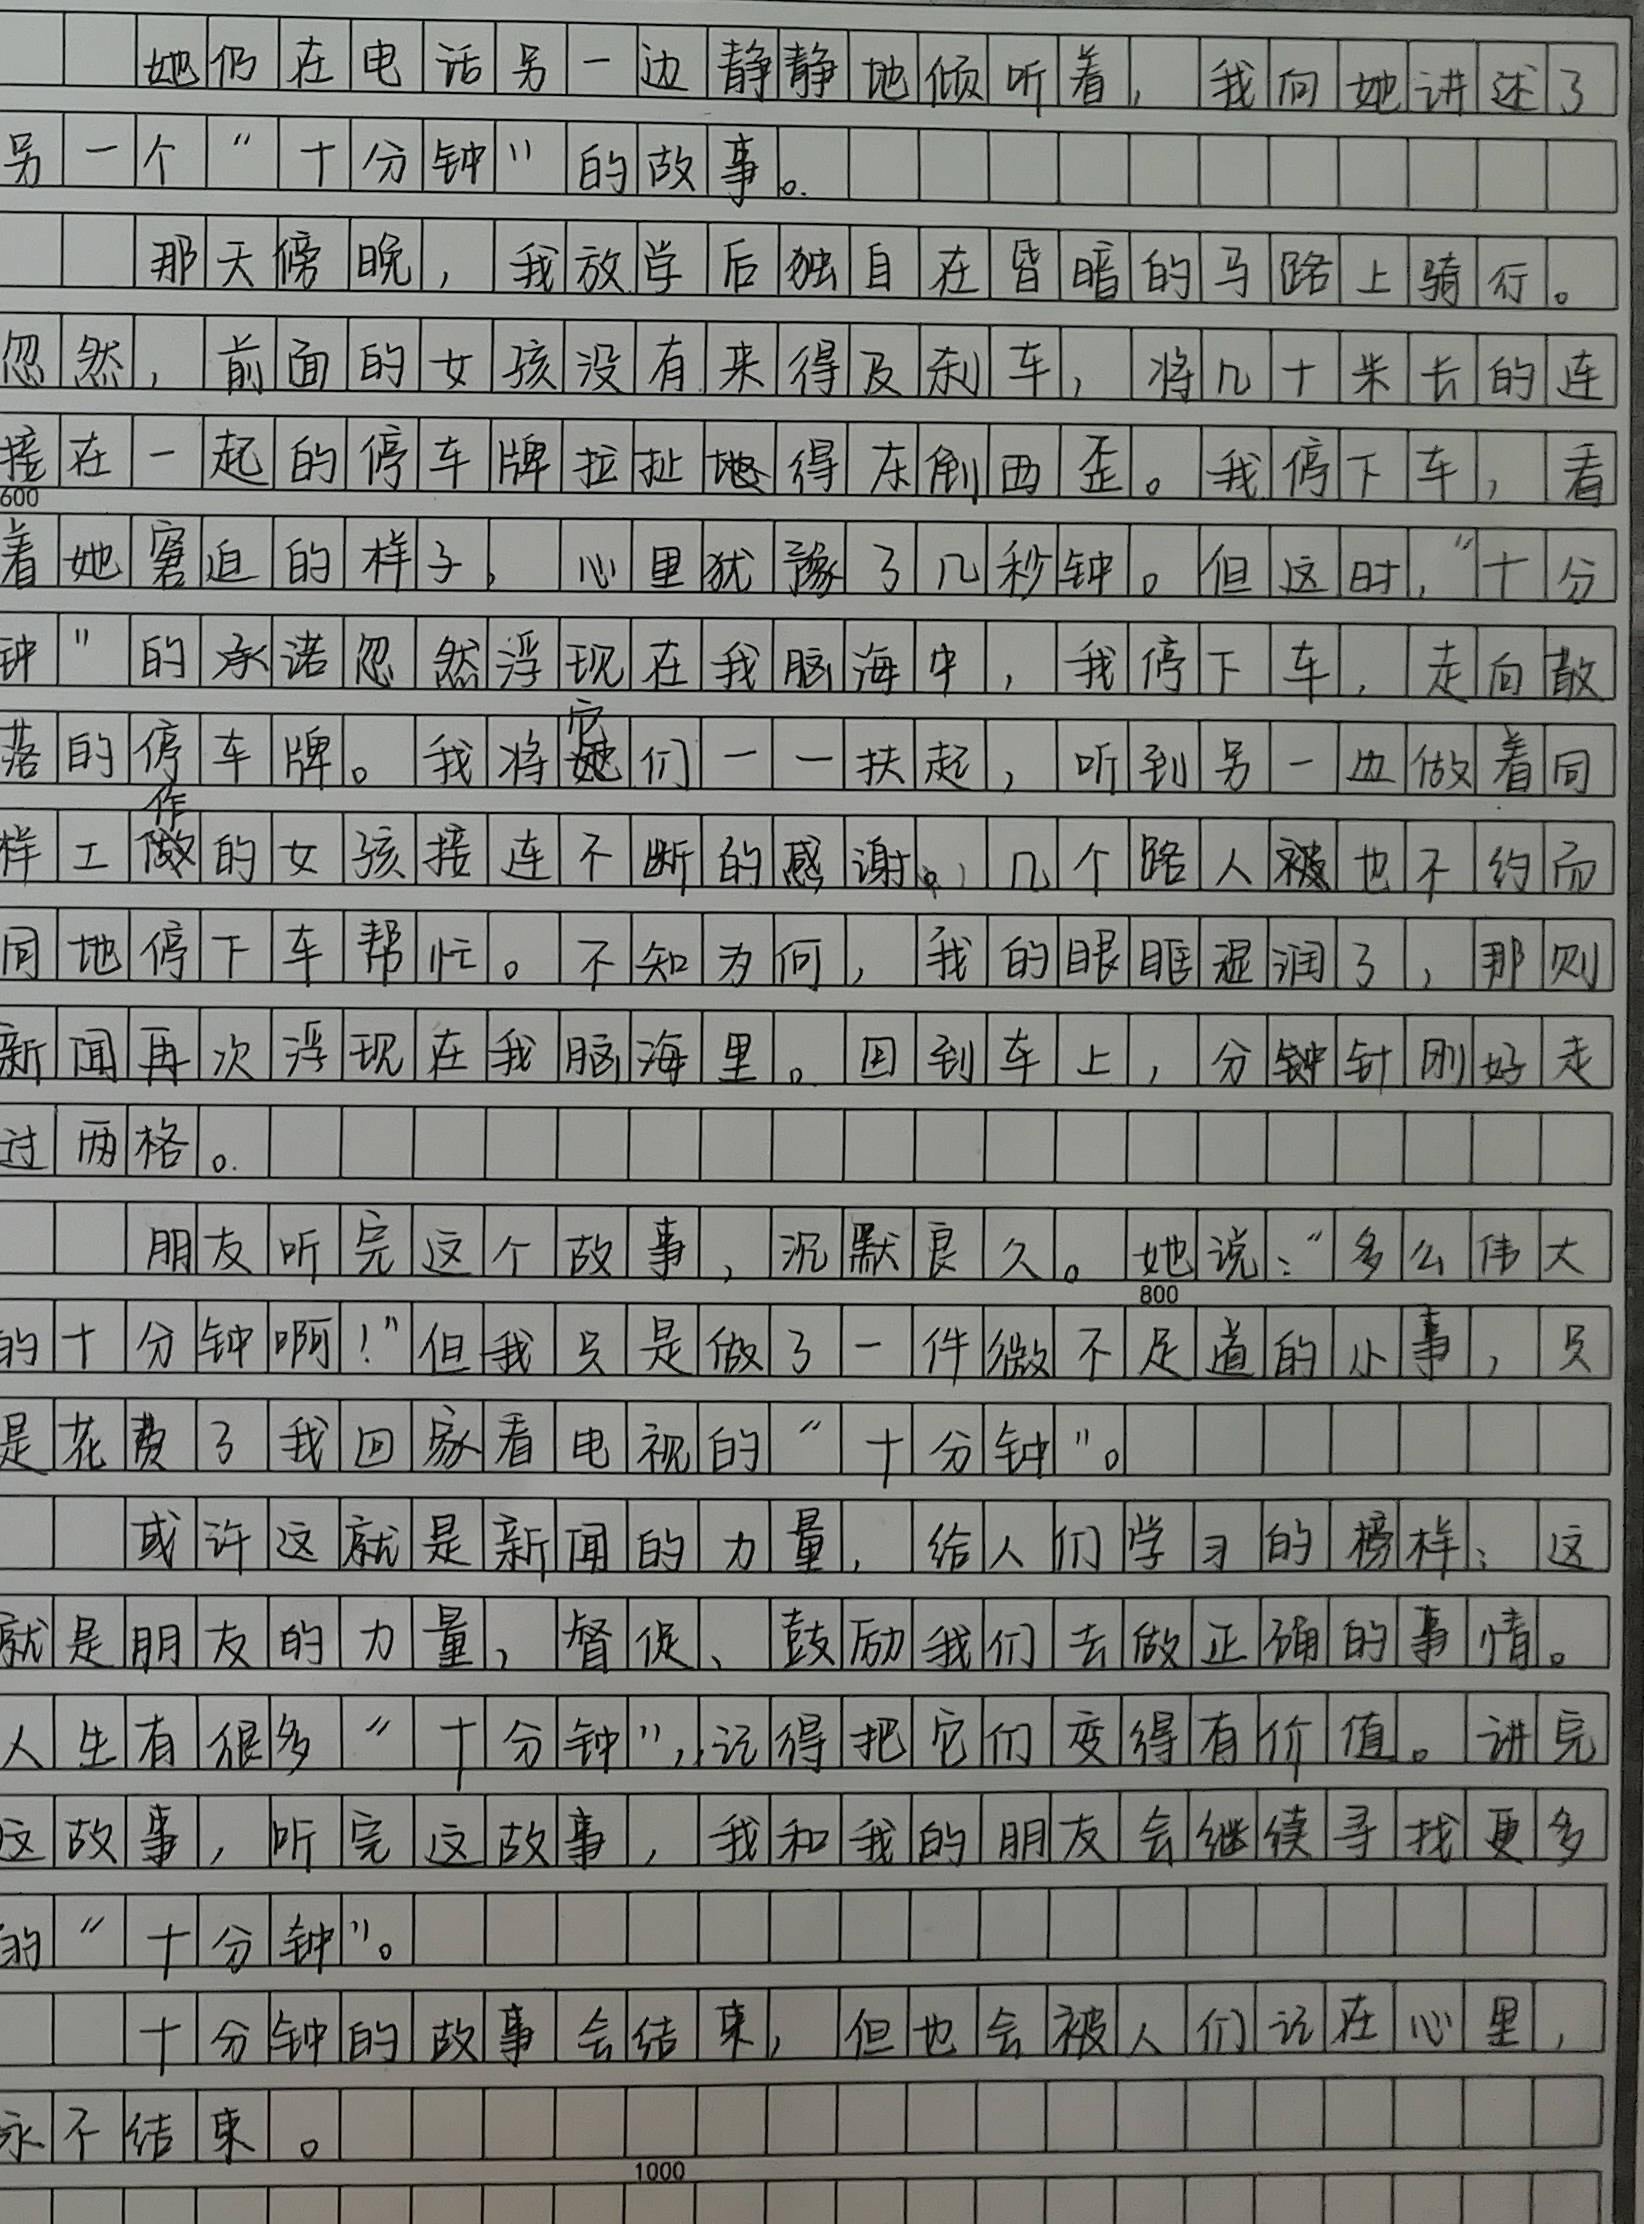 她仍在电话另一边静静地倾听着，我向她讲述了
另一个“十分钟”的故事。
那天傍晚，我放学后独自在昏暗的马路上骑行。
忽然，前面的女孩没有来得及刹车，将几十米长的连
接在一起的停车牌拉扯地得东倒西歪。我停下车，看
600
着她窘迫的样子，心里犹豫了几秒钟。但这时，“十分
钟”的承诺忽然浮现在我脑海中，我停下车，走向散
落的停车牌。我将它们一一扶起，听到另一边做着同
样工作的女孩接连不断的感谢。，几个路人也不约而
同地停下车帮忙。不知为何，我的眼眶湿润了，那则
新闻再次浮现在我脑海里。回到车上，分钟针刚好走
过两格。
朋友听完这个故事，沉默良久。她说：“多么伟大
800
的十分钟啊！”但我只是做了一件微不足道的小事，只
是花费了我回家看电视的“十分钟”。
或许这就是新闻的力量，给人们学习的榜样；这
就是朋友的力量，督促、鼓励我们去做正确的事情。
人生有很多“十分钟”，记得把它们变得有价值。讲完
这故事，听完这故事，我和我的朋友会继续寻找更多
的“十分钟”。
十分钟的故事会结束，但也会被人们记在心里，
永不结束。
1000